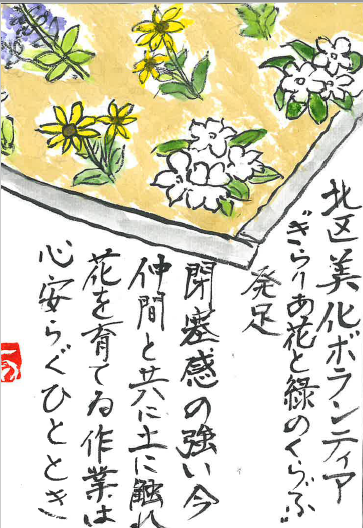 北区美化ボランティア
"きらりあ花と緑のくらぶ"
発足
閉塞感の強い今
仲間と共に土に触れ
花を育てる作業は
心安らぐひととき